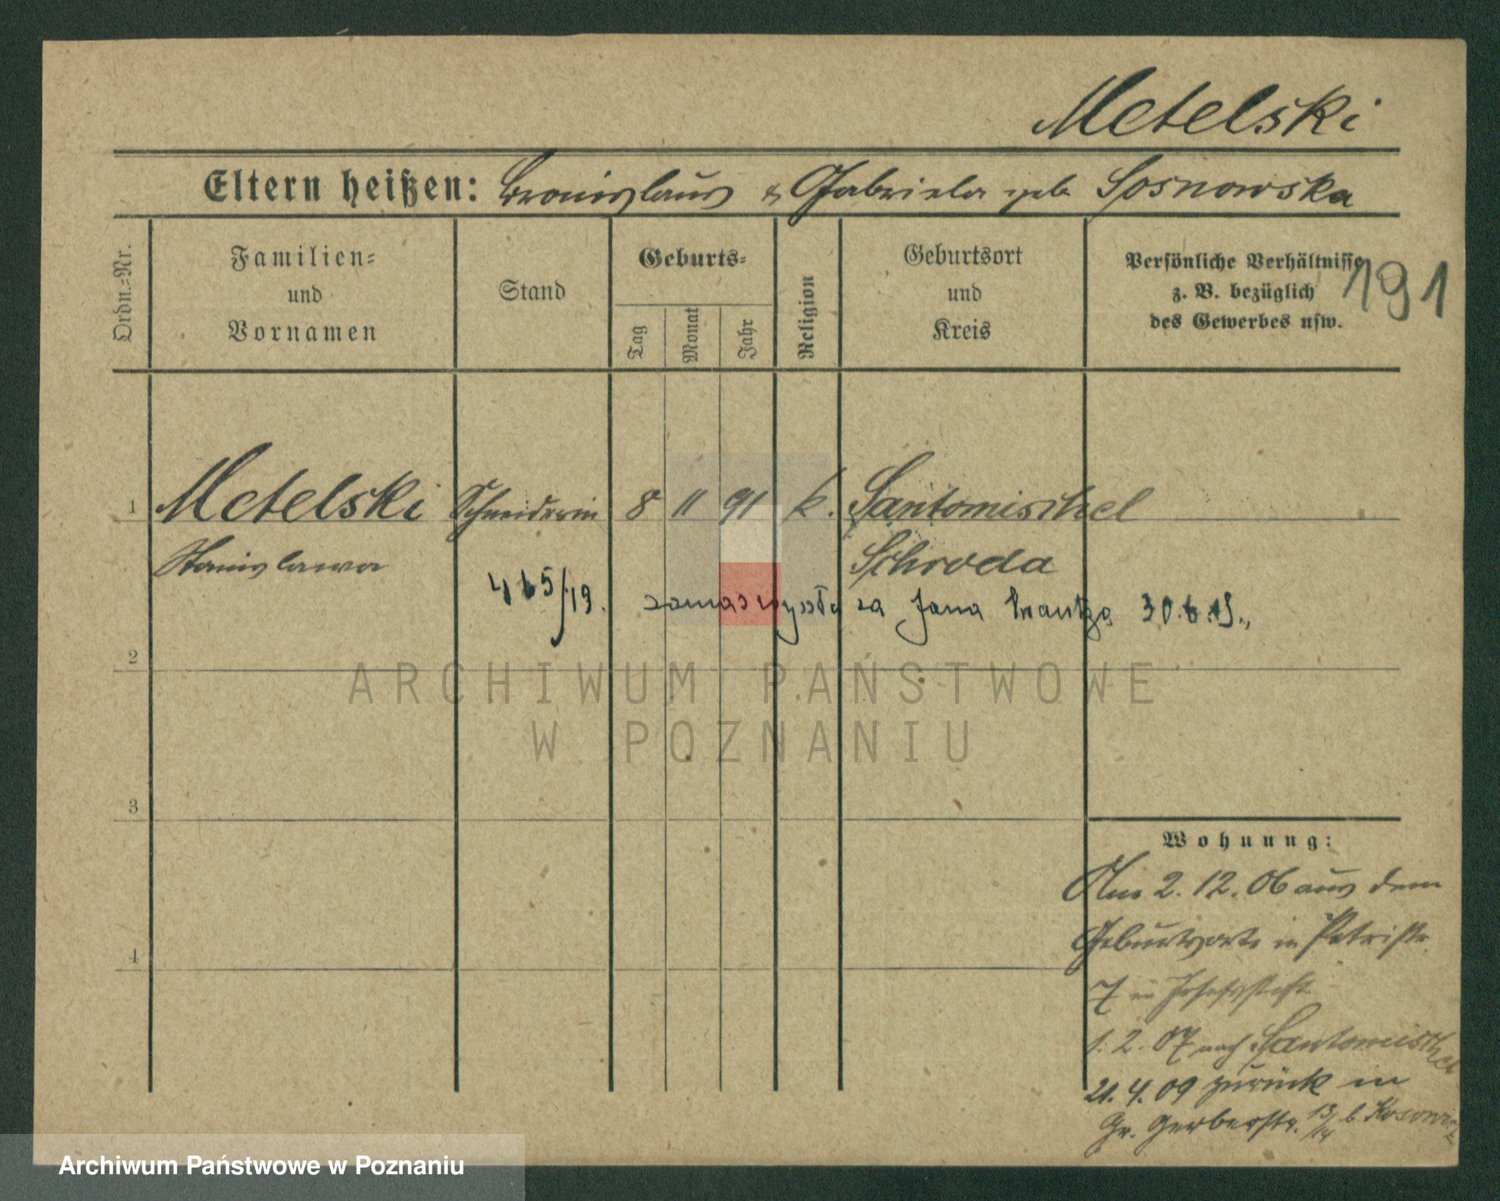 Metelski
Eltern heißen: Bronislaus & Gabriela geb Sosnowska
Ordn.-Nr.
Familien-
und
Vornamen
Stand
Geburts-
Tag
Monat
Jahr
Religion
Geburtsort
und
Kreis
Persönliche Verhältnisse
z. B. bezüglich
des Gewerbes usw.
191
1 Metelski Schneiderin 8 11 91 k. Santomischel
Stanislawa Schroda
465/19. zamąż wyszła za Jana 30.6.19.,
2
ARCHIWUM PAŃSTWOWE
W POZNANIU
3
Wohnung:
Am 2. 12. 06 aus dem
4
Geburtsorte in Petristr.
7 in
1. 2. 07 nach Santomischel
21. 4. 09 zurück in
Gr. Gerberstr. 13/14 b.
Archiwum Państwowe w Poznaniu